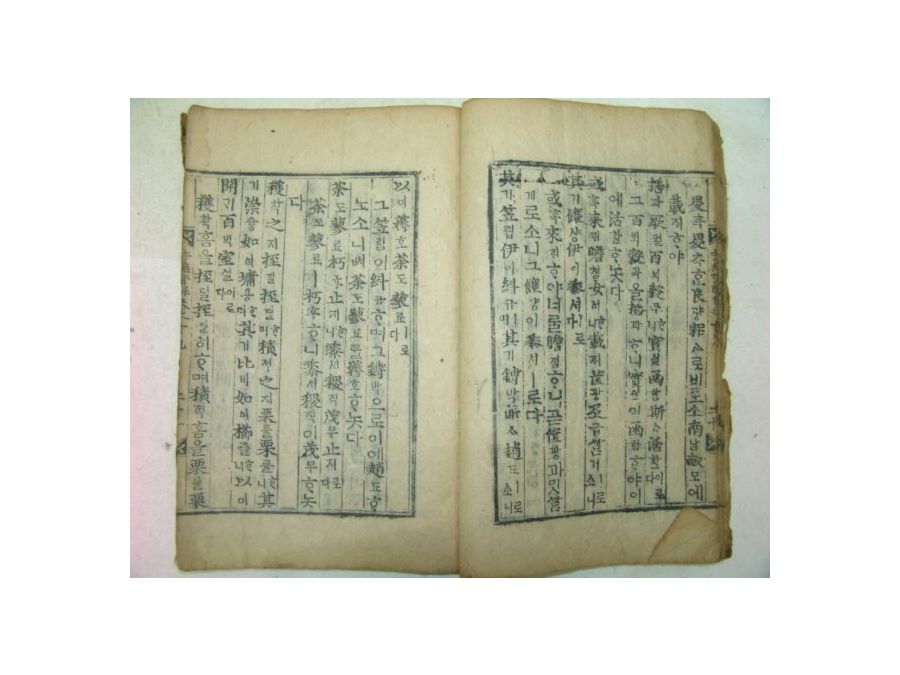 畟측畟측ᄒᆞᆫ良량耜ᄉᆞ로비로소南남畝모에
載ᄌᆡᄒᆞ야
播파厥궐百ᄇᆡᆨ穀곡ᄒᆞ니實실函함斯ᄉᆞ活활이로다
그百ᄇᆡᆨ穀곡을播파ᄒᆞ니實실이函함ᄒᆞ야이
에活활ᄒᆞ놋다
或혹來ᄅᆡ瞻쳠女여ᄒᆞ니載ᄌᆡ筐광及급筥거ㅣ로소니
其기饟샹伊이黍셔ㅣ로다
或혹來ᄅᆡᄒᆞ야너를瞻쳠ᄒᆞ니곧筐광과밋筥
거ㅣ로소니그饟샹이黍셔ㅣ로다
其기笠립伊이糾규ㅣ며其기鎛박斯ᄉᆞ趙됴ㅣ로소니
以이薅호荼도蓼료ㅣ로다
그笠립이糾규ᄒᆞ며그鎛박으로이에趙됴ᄒᆞ
노소니ᄡᅥ荼도蓼료를薅호ᄒᆞ놋다
荼도蓼료朽후止지ᄒᆞ니黍셔稷직茂무止지로다
荼도蓼료ㅣ朽후ᄒᆞ니黍셔稷직이茂무ᄒᆞ놋
다
穫확之지挃딜挃딜ᄒᆞ며積젹之지栗률栗률ᄒᆞ니其
기崇슝如여墉용ᄒᆞ며其기比비如여櫛즐ᄒᆞ니以이
開ᄀᆡ百ᄇᆡᆨ室실이로다
穫확홈을挃딜挃딜히ᄒᆞ며積젹홈을栗률栗